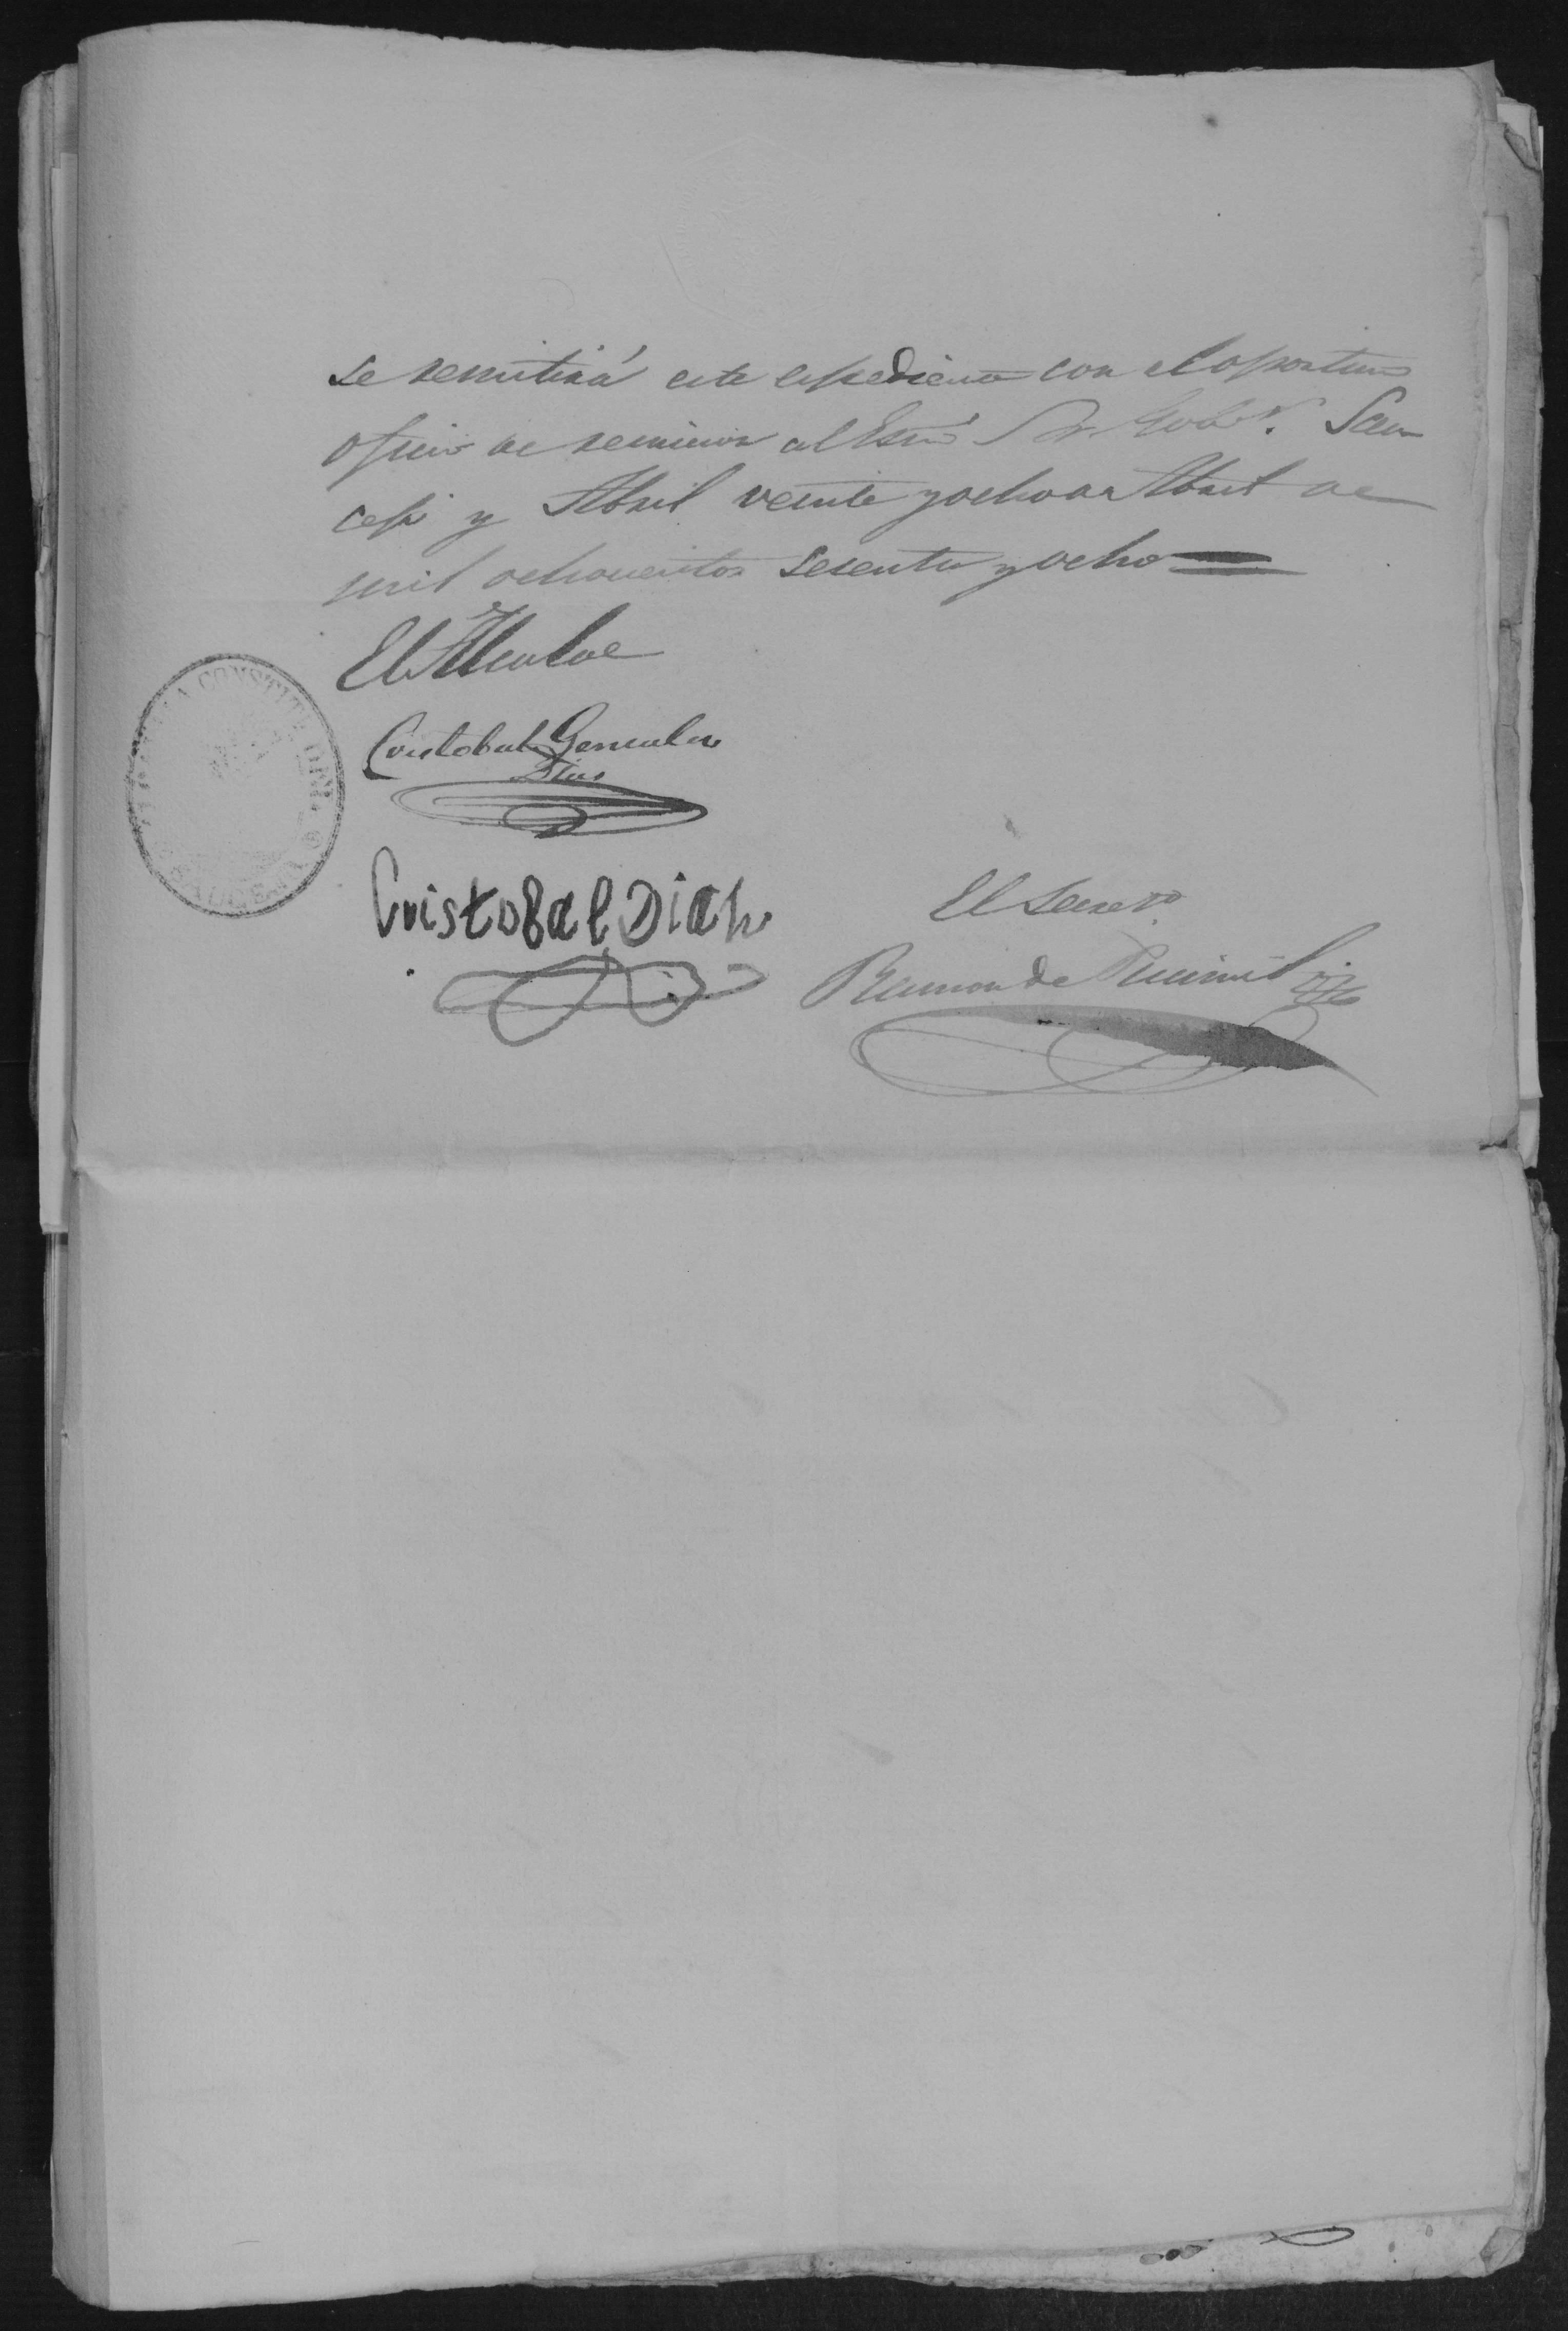 se remitirá este espediente con el oportuno
oficio de remision al Esmo Sor Gobr. Sau
cejo y Abril veinte y ocho de Abril de
mil ochocientos sesenta y ocho
El Alcalde
Cristobal Gonzalez
Dias
CONSTITUCIONAL
Cristobal Diah
El Secreto
Ramon de